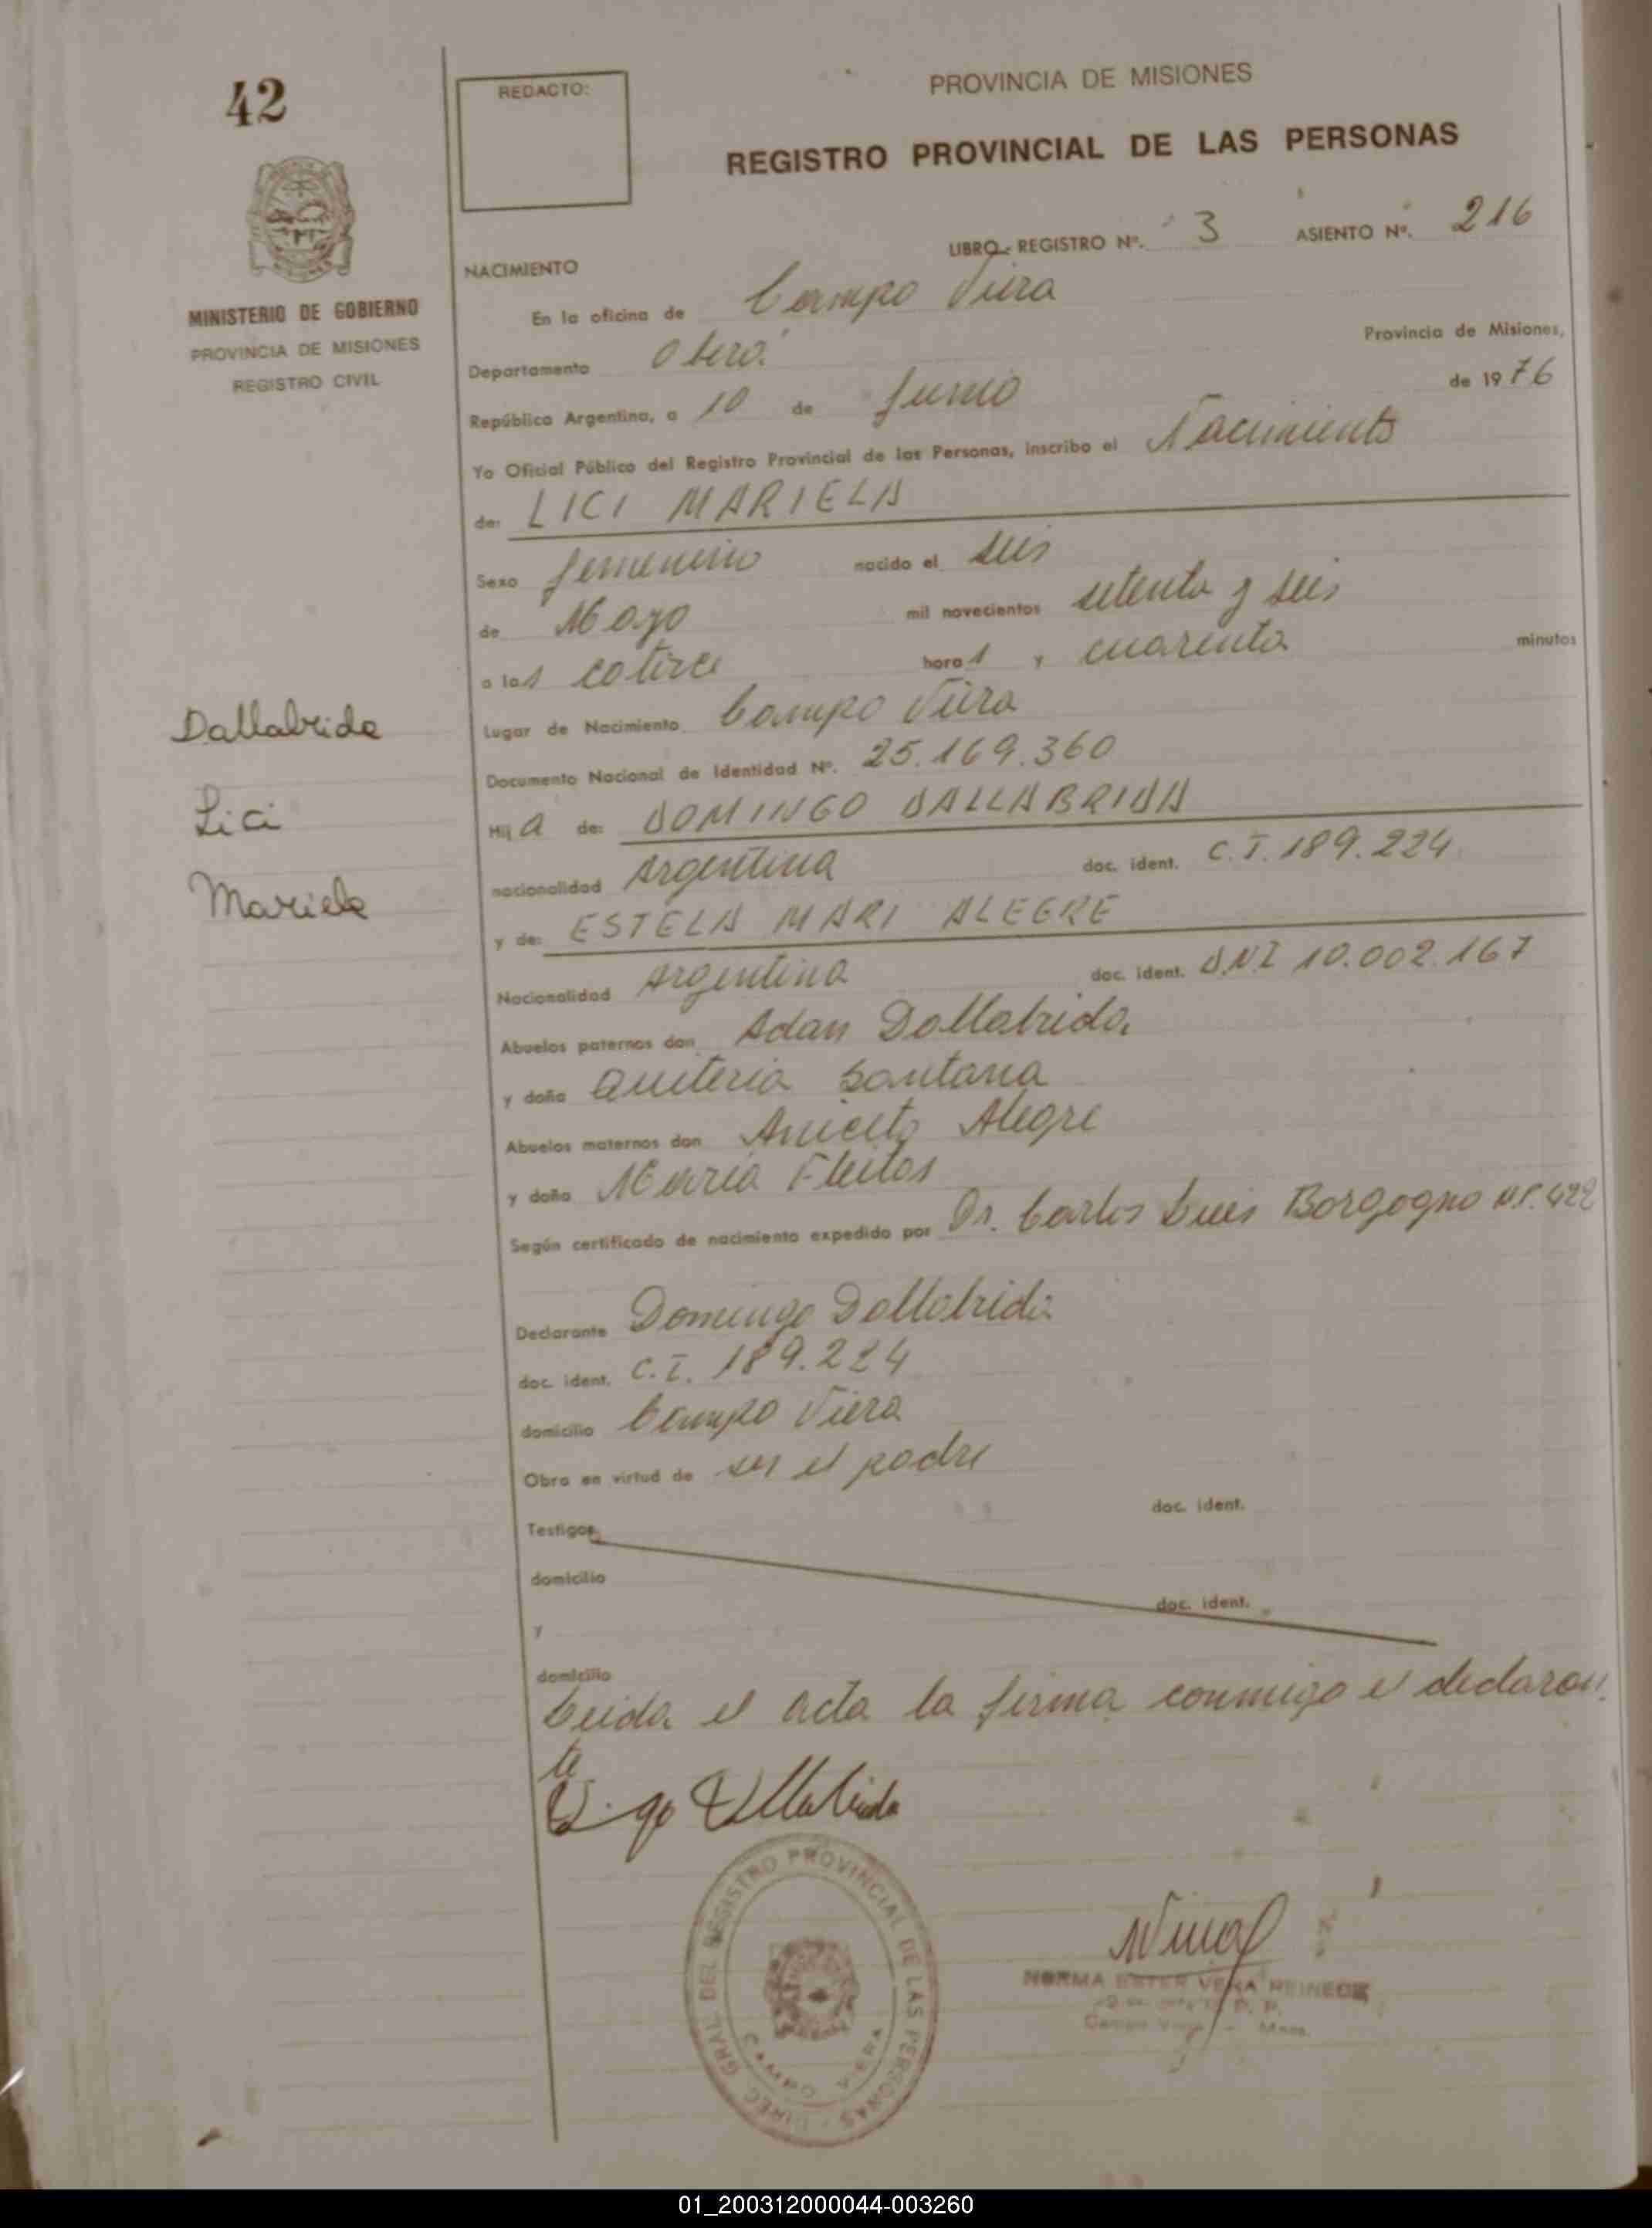 42
REDACTO:
PROVINCIA DE MISIONES
REGISTRO PROVINCIAL DE LAS PERSONAS
MINISTERIO DE GOBIERNO
PROVINCIA DE MISIONES
REGISTRO CIVIL
LIBRO - REGISTRO Nº. 3 ASIENTO Nº. 216
NACIMIENTO
En la oficina de Campo Viera
Departamento Oberá Provincia de Misiones,
República Argentina, a 10 de Junio de 1976
Yo Oficial Público del Registro Provincial de las Personas, inscribo el Nacimiento
de: LICI MARIELA
Sexo femenino nacido el seis
de Mayo mil novecientos setenta y seis
a las catorce horas y cuarenta minutos
Lugar de Nacimiento Campo Viera
Documento Nacional de Identidad Nº. 25.169.360
Hija de: DOMINGO DALLABRIDA
nacionalidad Argentina doc. ident. C.I. 189.224
y de: ESTELA MARI ALEGRE
Nacionalidad Argentina doc. ident. D.N.I 10.002.167
Abuelos paternos don Adan Dallabrida
y doña Quiteria Santana
Abuelos maternos don Aniceto Alegre
y doña Maria Fleitas
Según certificado de nacimiento expedido por Dr. Carlos Luis Borgogno M.P. 422
Declarante Domingo Dallabrida
doc. ident. C.I. 189.224
domicilio Campo Viera
Obra en virtud de ser el padre
doc. ident.
Testigos
domicilio
doc. ident.
y
domicilio
Leida el acta la firma conmigo el declaran
te
Dallabrida
Lici
Mariela
DIREC. GRAL DEL REGISTRO PROVINCIAL DE LAS PERSONAS
CAMPO VIERA
NORMA ESTER VERA REINECK
01_200312000044-003260